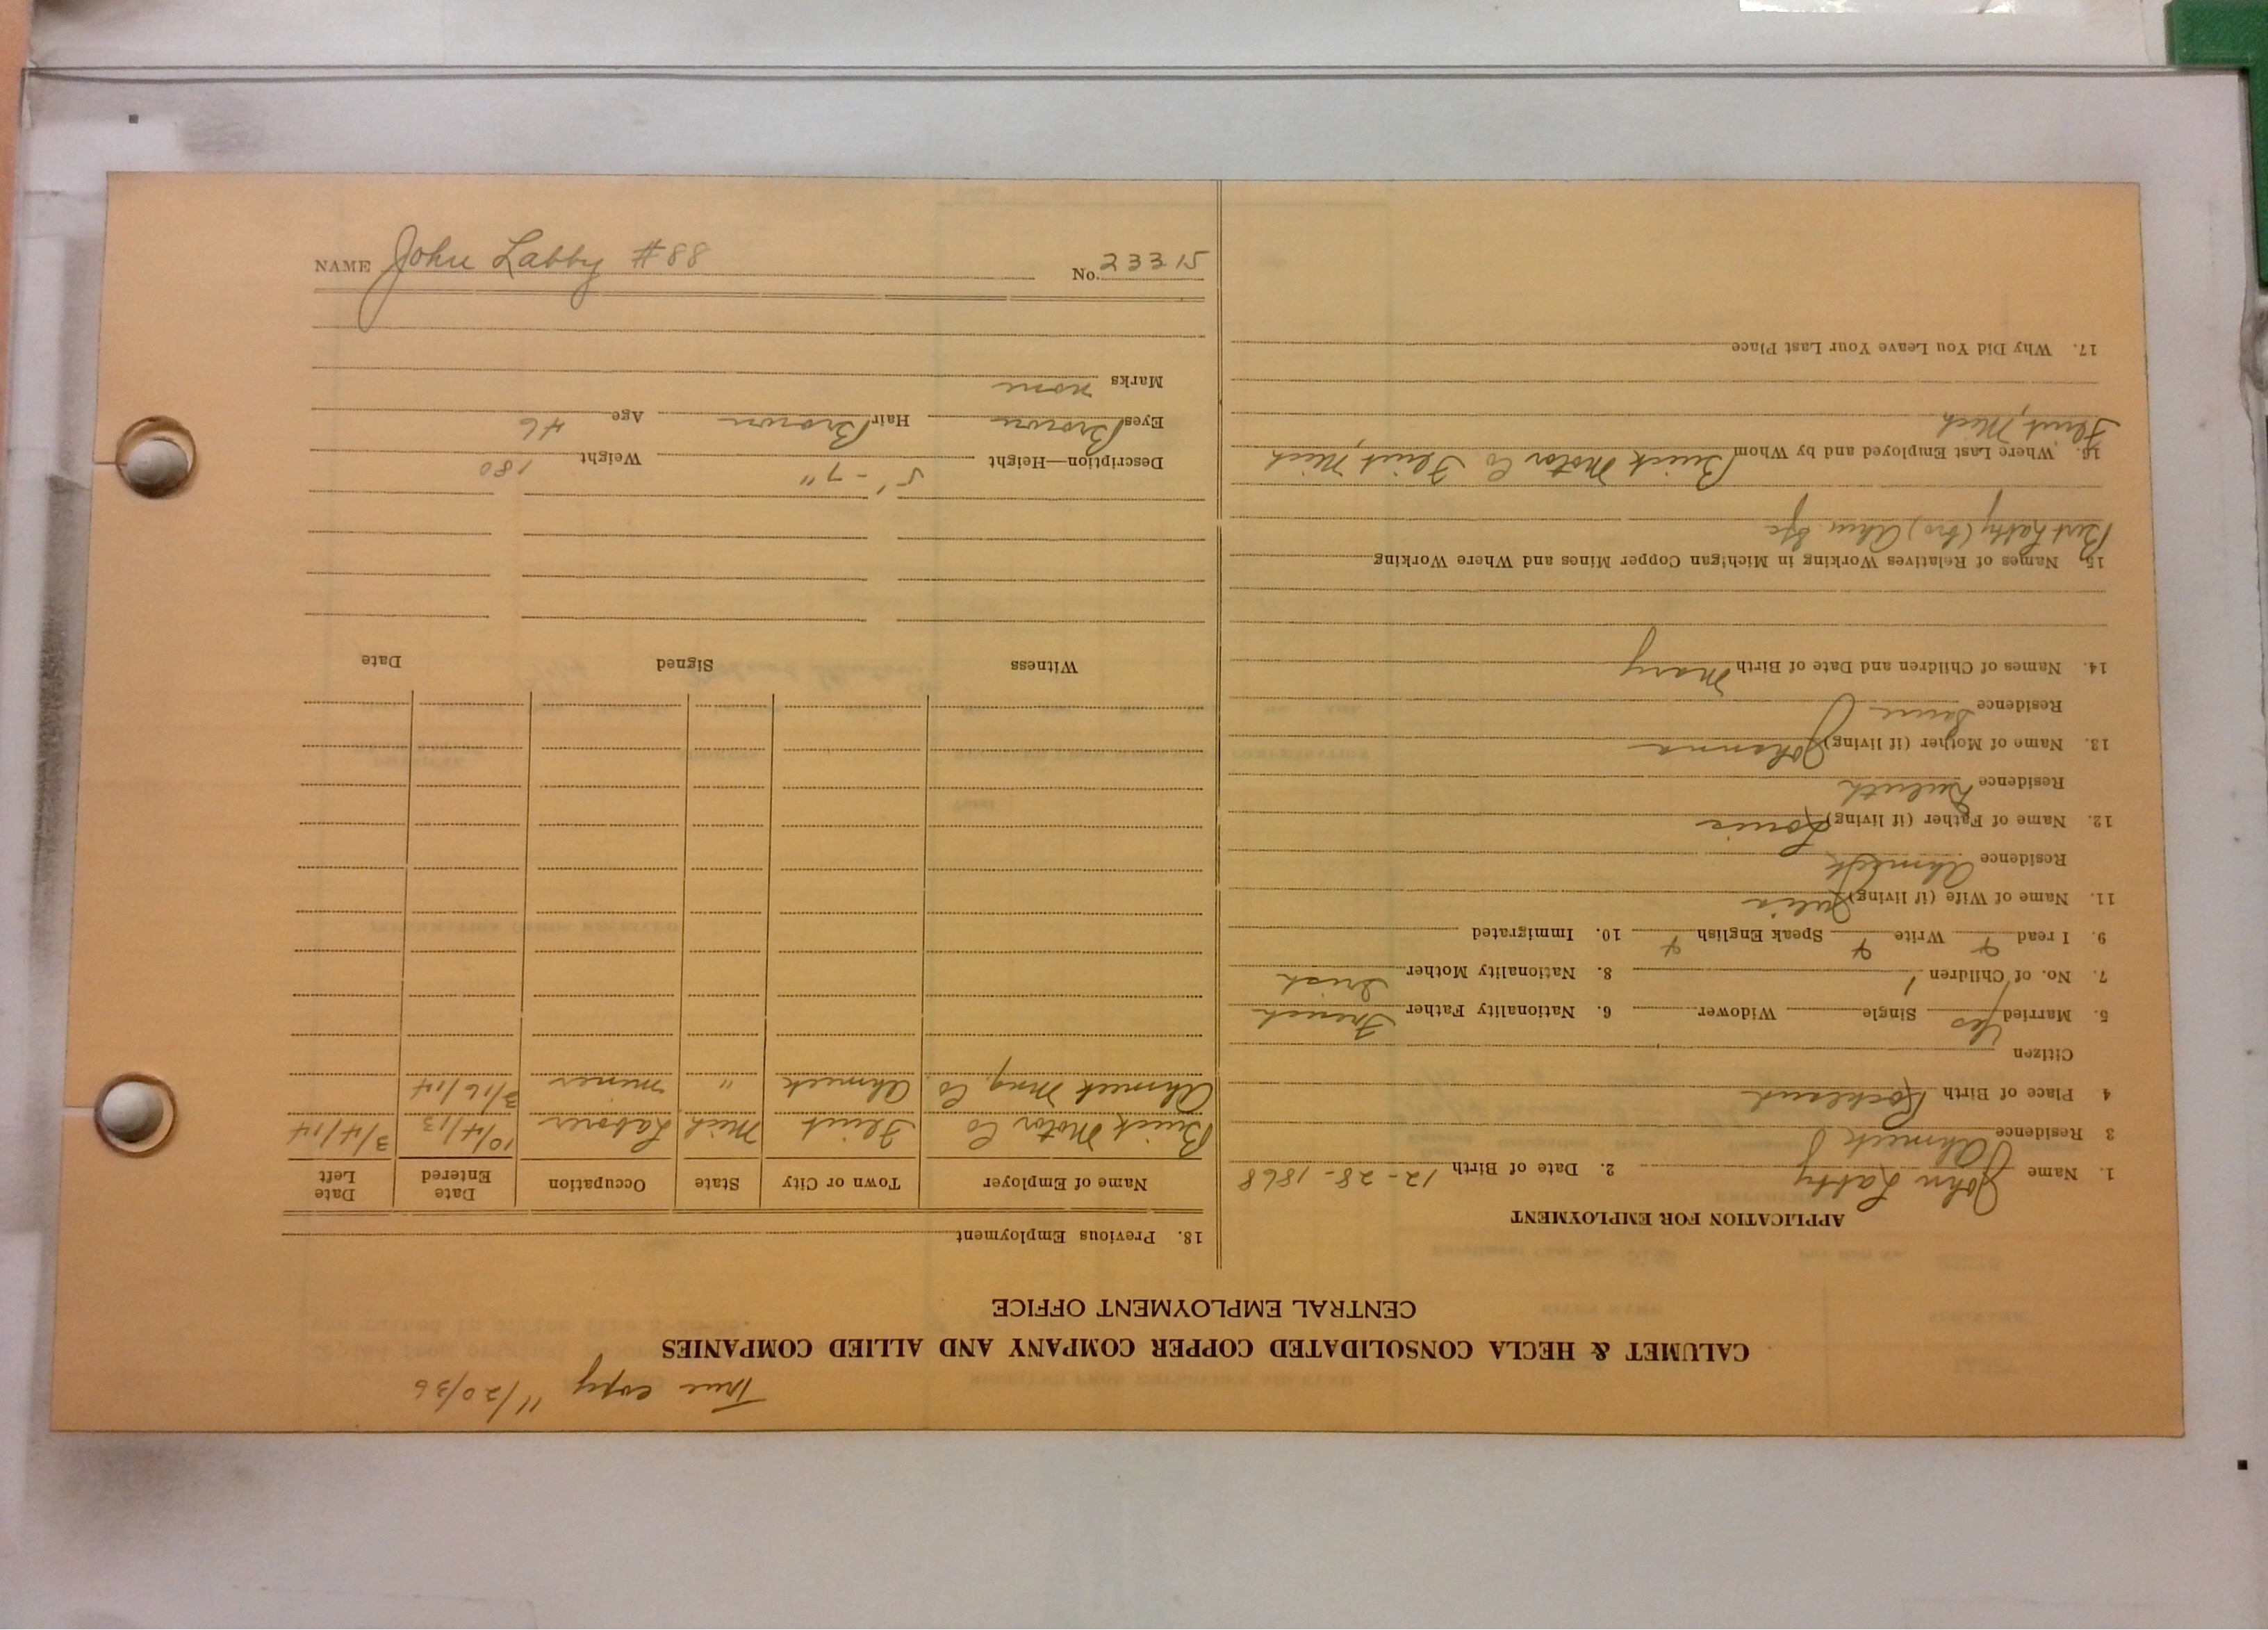 True copy 11/20/36
CALUMET & HECLA CONSOLIDATED COPPER COMPANY AND ALLIED COMPANIES
CENTRAL EMPLOYMENT OFFICE
APPLICATION FOR EMPLOYMENT
1. Name John Labby 2. Date of Birth 12-28-1868
3 Residence Ahmeek
4 Place of Birth Rockland
Citizen
5. Married Yes Single Widower 6. Nationality Father French
7. No. of Children 1 8. Nationality Mother Irish
9. I read Write Speak English 10. Immigrated
11. Name of Wife (if living) Julia
Residence Ahmeek
12. Name of Father (if living) Louis
Residence Duluth
13. Name of Mother (if living) Johanna
Residence Same
14. Names of Children and Date of Birth Mary
15. Names of Relatives Working in Michigan Copper Mines and Where Working
Bert Labby (bro) Ahm
16. Where Last Employed and by Whom Buick Motor Co Flint Mich,
Flint, Mich
17. Why Did You Leave Your Last Place
18. Previous Employment
Name of Employer Town or City State Occupation Date Entered Date Left
Buick Motor Co Flint Mich Laborer 10/4/13 3/4/14
Ahmeek Mng. Co. Ahmeek " miner 3/16/14
Witness Signed Date
Description—Height 5'-7" Weight 180
Eyes Brown Hair Brown Age 46
Marks none
NAME John Labby #88 No. 23315